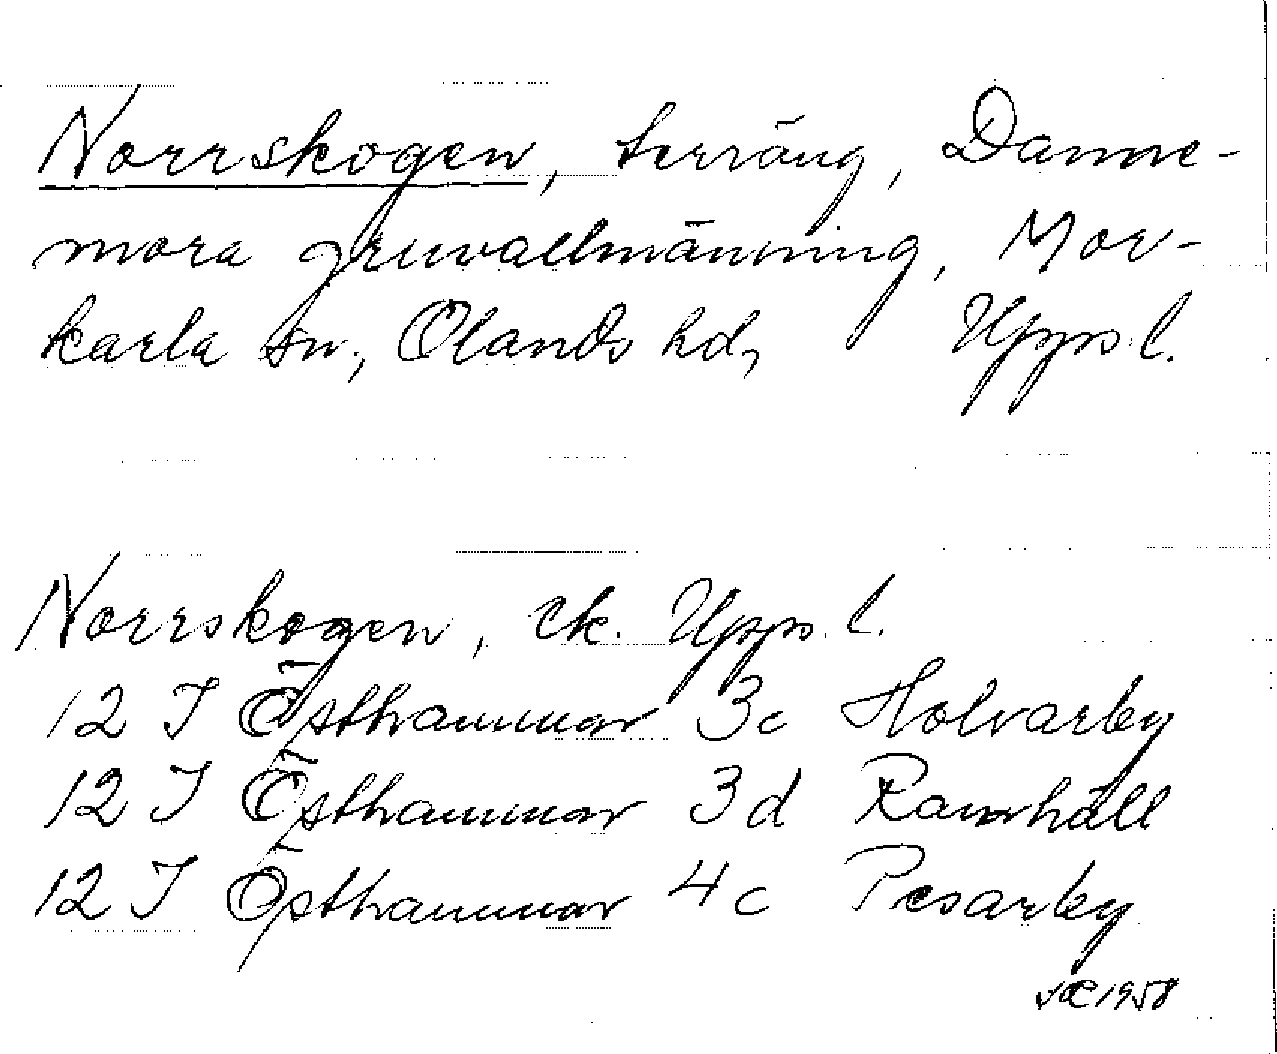 Norrskogen, terräng, Danne-
mora gruvallmänning, Mor-
karla sn, Olands hd, Upps. l.
Norrskogen, ek. Upps. l.
12 I Östhammar 3c Holvarby
12 I Östhammar 3d Ramhäll
12 I Östhammar 4c Pesarby
1958